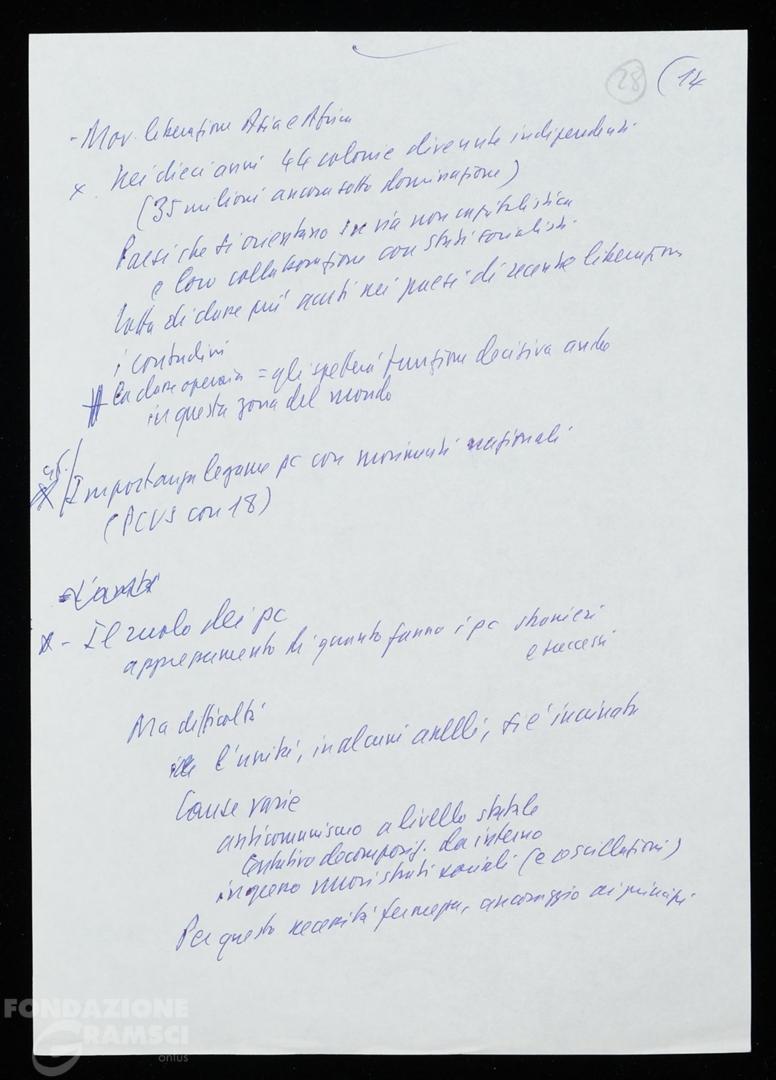 28 (14
- Mov. liberazione Asia e Africa
x. Nei dieci anni 44 colonie divenute indipendenti
(35 milioni ancora sotto dominazione)
Paesi che si orientano in via non capitalistica
e loro collaborazione con stati socialisti.
Lotta di classe più acuti nei paesi di recente liberazione
i contadini
La classe operaia = gli spetterà funzione decisiva anche
in questa zona del mondo
Importanza legame pc con movimenti nazionali
(PCUS con 18)
x - Il ruolo dei pc
apprezzamento di quanto fanno i pc stranieri
e successi
Ma difficoltà
l'unità, in alcuni anelli, si è incrinata
Cause varie
anticomunismo a livello statale
tentativo decomposiz. da interno
ingresso nuovi strati sociali (e oscillazioni)
Per questo necessità fermezza, ancoraggio ai principi
FONDAZIONE
GRAMSCI
onlus